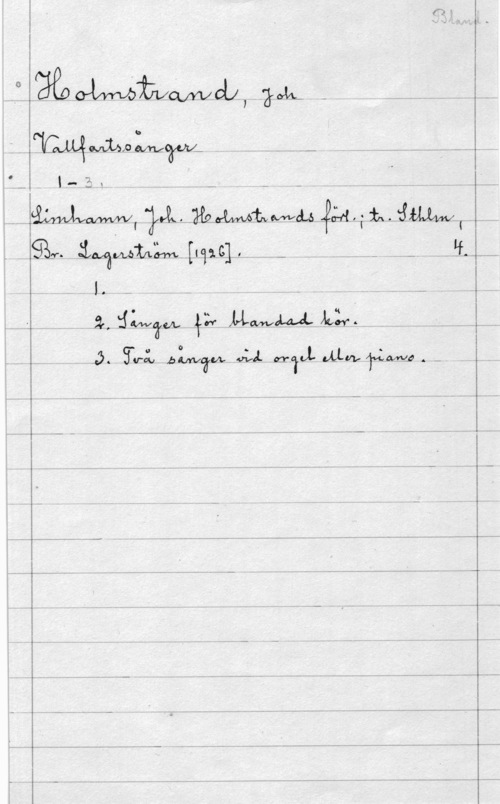 Bland.
Holmstrand, Joh
Vallfartssånger
1-3.
Limhamn, Joh. Holmstrands förl.; tr. Sthlm,
Br. Lagerström [1926]. 4.
1.
2. Sånger för blandad kör.
3. Två sånger vid orgel eller piano.